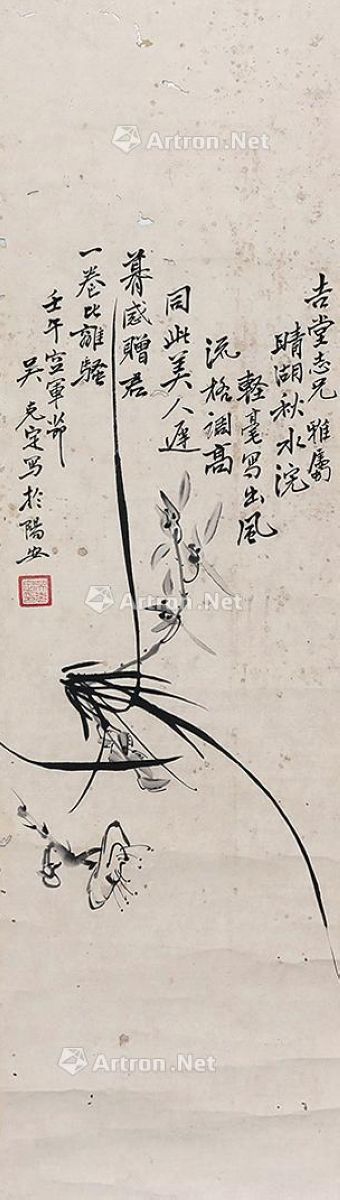 吉堂志兄雅属
晴湖秋水浣
輕毫寫出風
流格調高
同此美人遲
暮感贈君
一卷比離騷
壬午空軍節
吴克定写於陽安
Artron.Net
Artron.Net
Artron.Net